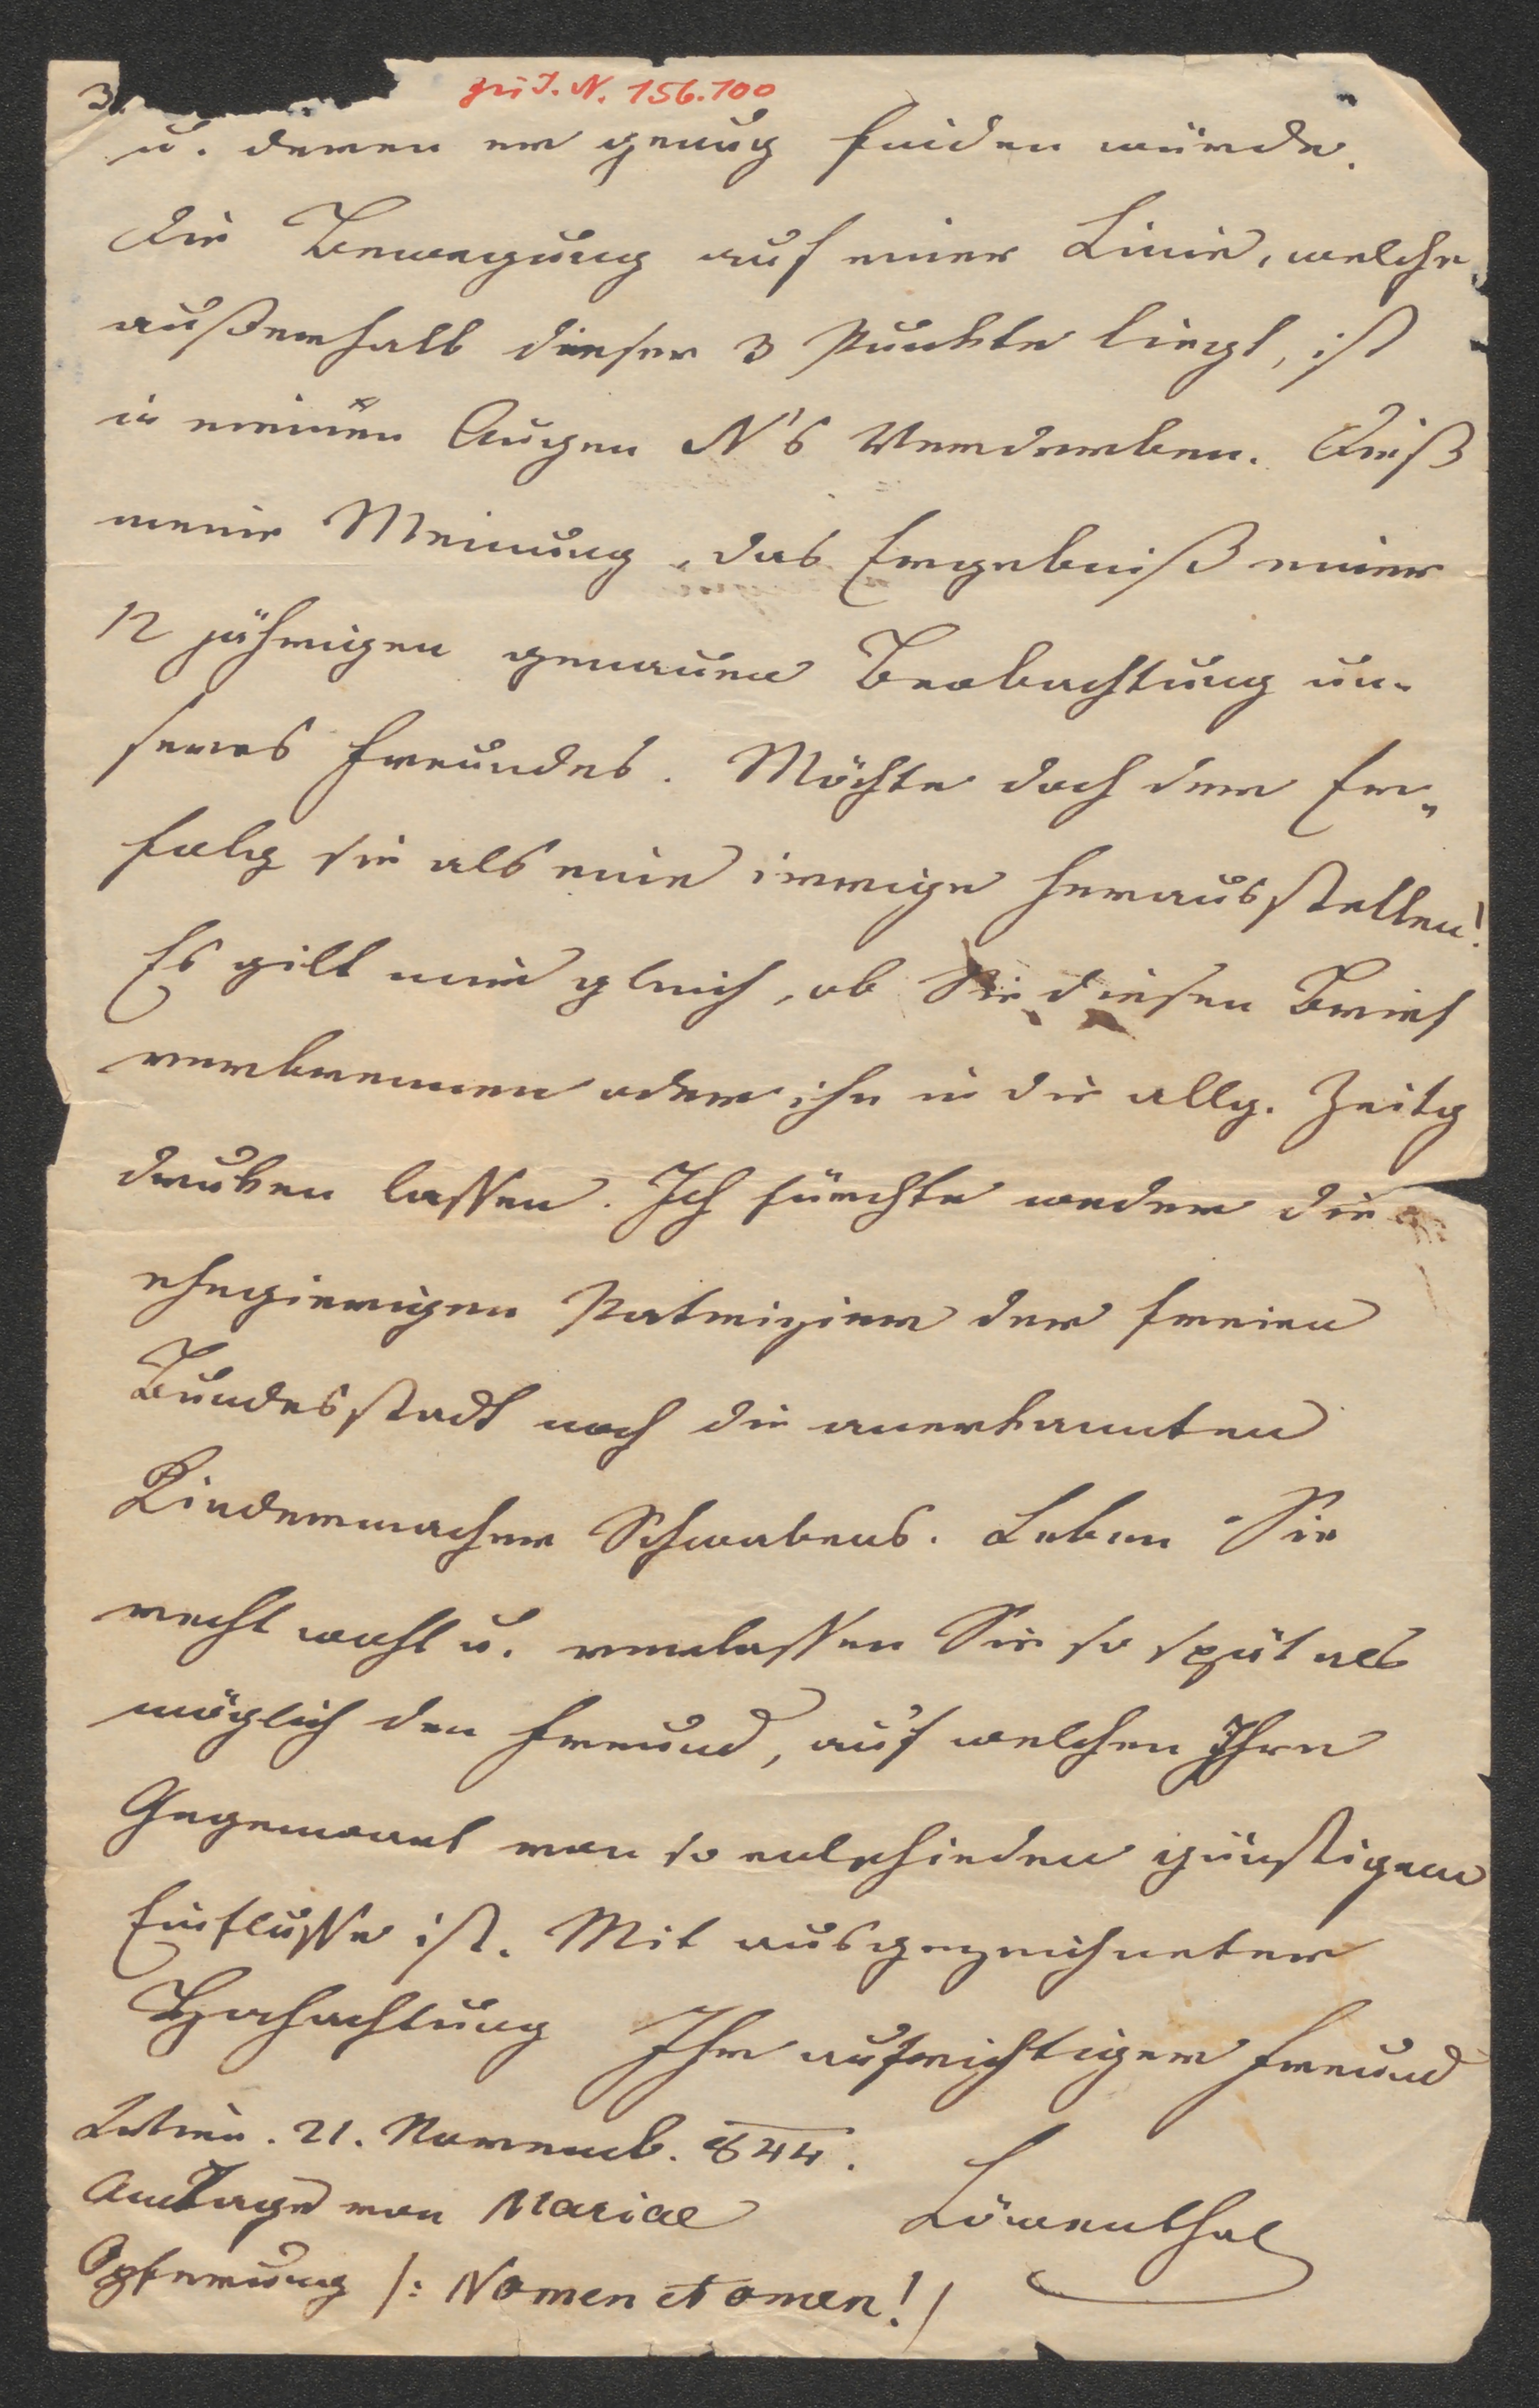 3.
zu I. N. 156.100
u. deren er genug finden würde.
Die Bewegung auf einer Linie, welche
außerhalb dieser 3 Punkte liegt, ist
in meinen Augen N's Verderben. Dieß
meine Meinung, das Ergebniß einer
12 jährigen genauen Beobachtung un-
seres Freundes. Möchte doch der Er-
folg sie als eine irrige herausstellen!
Es gilt mir gleich, ob Sie diesen Brief
verbrennen oder ihn in die allg. Zeitg
drucken lassen. Ich fürchte weder die
ehegierigen Patrizier der freien
Bundesstadt noch die anerkannten
Kindermacher Schwabens. Leben Sie
recht wohl u. verlassen Sie so spät als
möglich den Freund, auf welchen Ihre
Gegenwart von so entschieden günstigem
Einflusse ist. Mit ausgezeichneter
Hochachtung Ihr aufrichtiger Freund
21. Novemb. 844.
Am Tage von Mariae Löwenthal
Opferung /: Nomen et omen! /